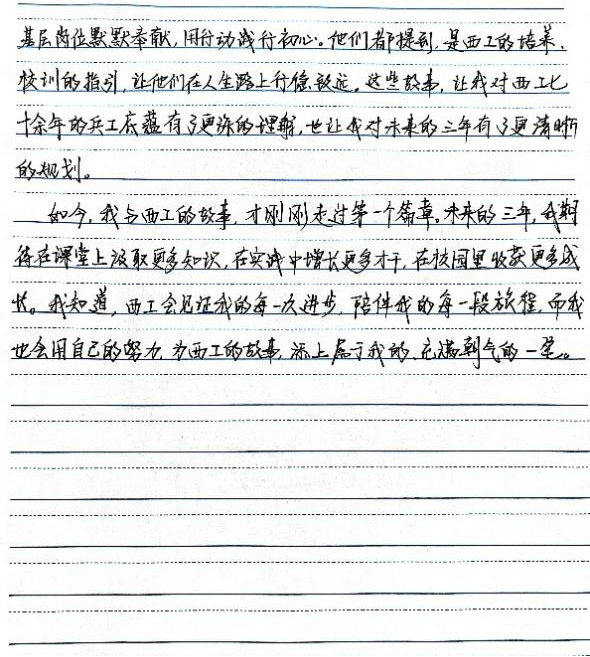 基层岗位默默奉献,用行动践行初心。他们都提到,是西工的培养、
校训的指引,让他们在人生路上行稳致远。这些故事,让我对西工七
十余年的兵工底蕴有了更深的理解,也让我对未来的三年有了更清晰
的规划。
如今,我与西工的故事,才刚刚走过第一个篇章。未来的三年,我期
待在课堂上汲取更多知识,在实践中增长更多才干,在校园里收获更多成
长。我知道,西工会见证我的每一次进步,陪伴我的每一段旅程,而我
也会用自己的努力,为西工的故事,添上属于我的、充满朝气的一笔。